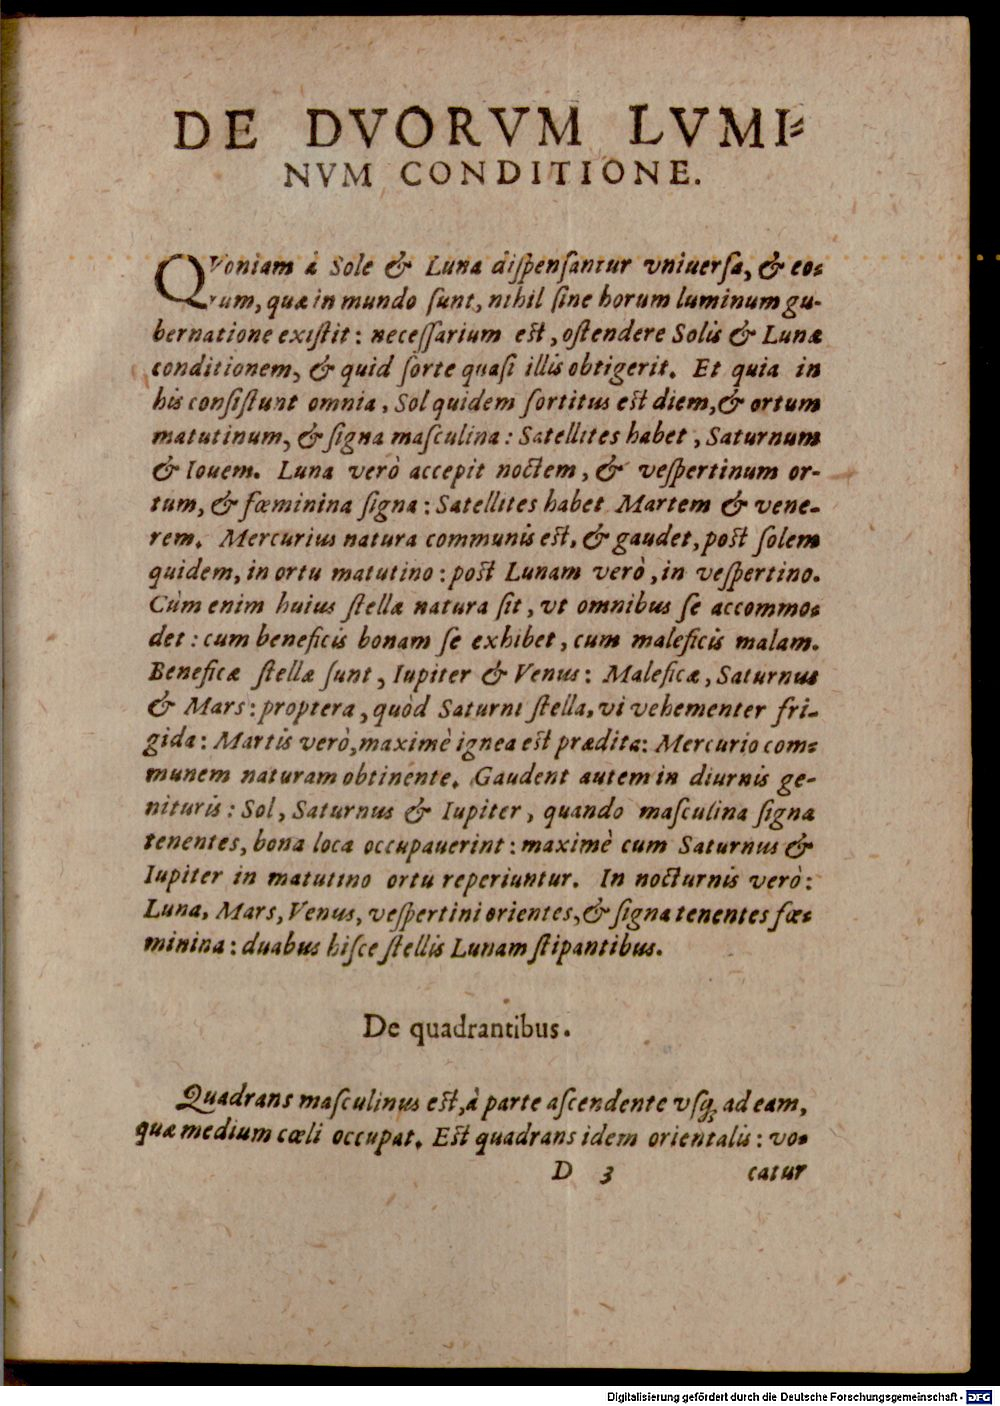 DE DVORVM LVMI-
NVM CONDITIONE.
QVoniam à Sole & Luna dispensantur vniuersa, & eo-
rum, quæ in mundo sunt, nihil sine horum luminum gu-
bernatione existit: necessarium est, ostendere Solis & Lunæ
conditionem, & quid sorte quasi illis obtigerit. Et quia in
his consistunt omnia, Sol quidem sortitus est diem, & ortum
matutinum, & signa masculina: Satellites habet, Saturnum
& Iouem. Luna verò accepit noctem, & vespertinum or-
tum, & fœminina signa: Satellites habet Martem & vene-
rem. Mercurius natura communis est, & gaudet, post solem
quidem, in ortu matutino: post Lunam verò, in vespertino.
Cùm enim huius stellæ natura sit, vt omnibus se accommo-
det: cum beneficis bonam se exhibet, cum maleficis malam.
Beneficæ stellæ sunt, Iupiter & Venus: Maleficæ, Saturnus
& Mars: proptera, quòd Saturni stella, vi vehementer fri-
gida: Martis verò, maximè ignea est prædita: Mercurio com-
munem naturam obtinente. Gaudent autem in diurnis ge-
nituris: Sol, Saturnus & Iupiter, quando masculina signa
tenentes, bona loca occupauerint: maximè cum Saturnus &
Iupiter in matutino ortu reperiuntur. In nocturnis verò:
Luna, Mars, Venus, vespertini orientes, & signa tenentes fœ-
minina: duabus hisce stellis Lunam stipantibus.
De quadrantibus.
Quadrans masculinus est, à parte ascendente vsq; ad eam,
quæ medium cœli occupat. Est quadrans idem orientalis: vo-
D 3 catur
Digitalisierung gefördert durch die Deutsche Forschungsgemeinschaft - DFG